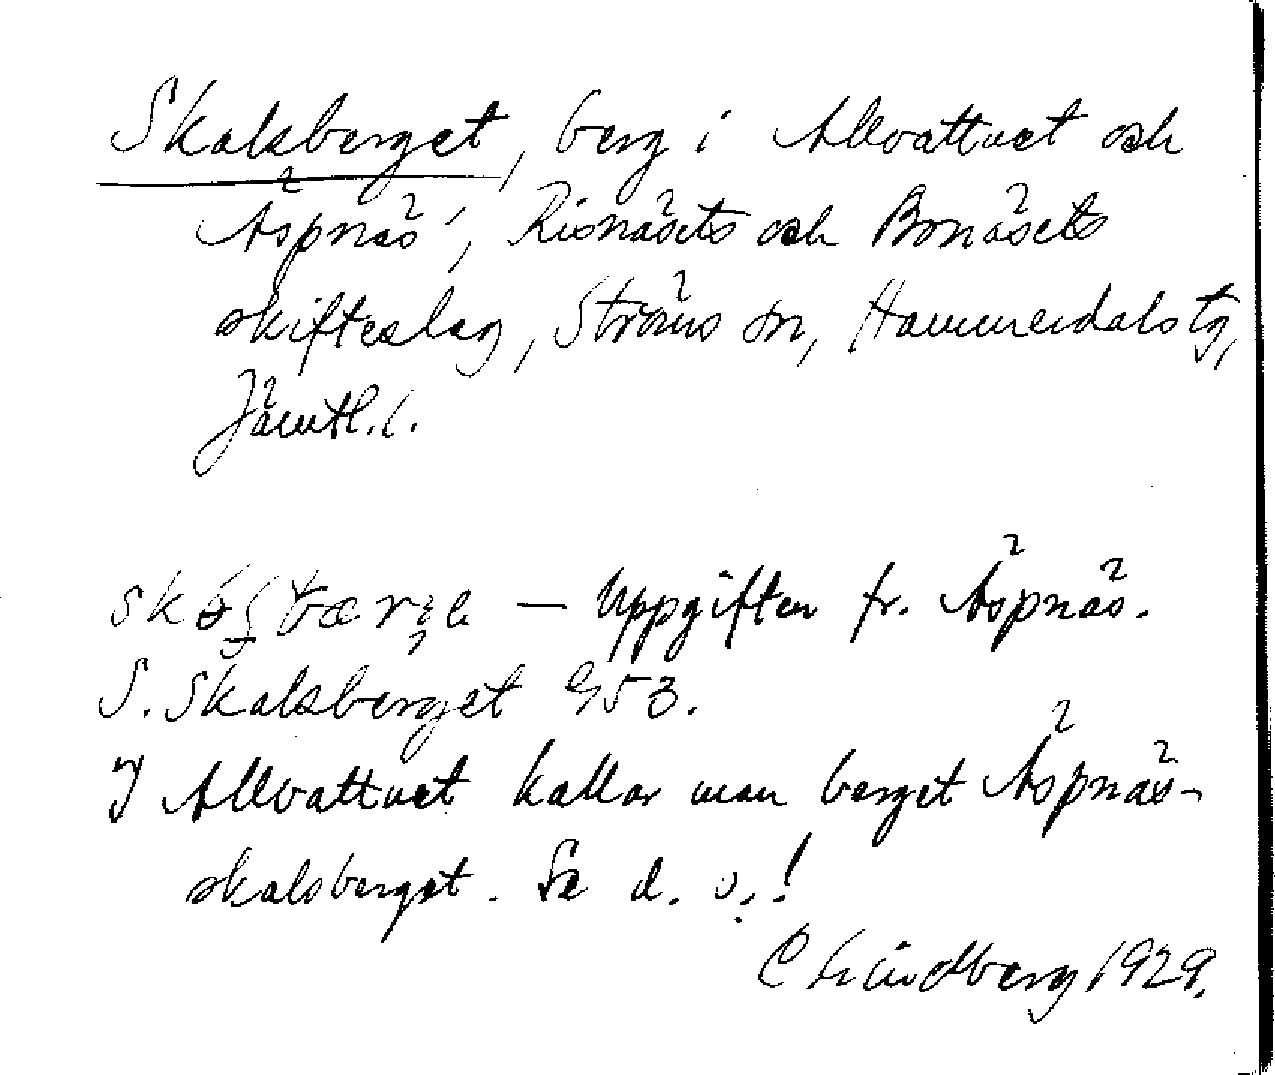 Skalsberget, berg i Allvattnet och
Äspnäs', Risnäsets och Bonäsets
skifteslag, Ströms sn, Hammerdals tg,
Jämtl. l.
— Uppgiften fr. Äspnäs.
S. Skalsberget G53.
I Allvattnet kallar man berget Äspnäs-
skalsberget. Se d. o.!
C Lindberg 1929.